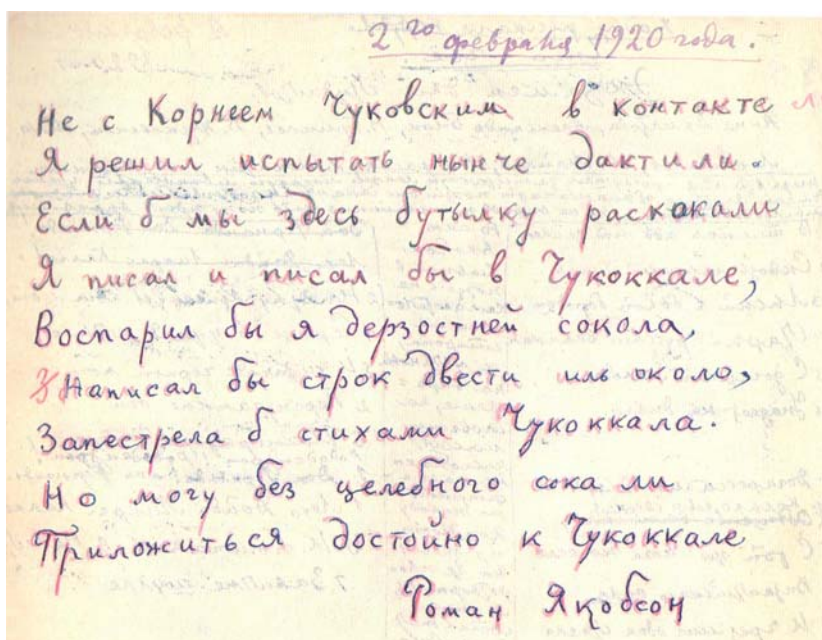 2го февраля 1920 года.
Не с Корнеем Чуковским в контакте
Я решил испытать нынче дактили.
Если б мы здесь бутылку раскокали
Я писал и писал бы в Чукоккале,
Воспарил бы я дерзостней сокола,
Написал бы строк двести иль около,
Запестрела б стихами Чукоккала.
Но могу без целебного сока ли
Приложиться достойно к Чукоккале
Роман Якобсон